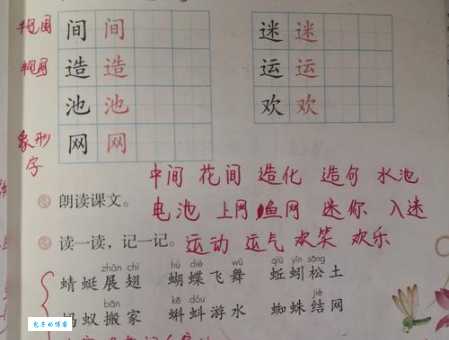 半包围 间 间 迷 迷
半包围 造 造 运 运
池 池 欢 欢
象形字 网 网
中间 花间 造化 造句 水池
朗读课文。 电池 上网 鱼网 迷你 入迷
读一读，记一记。 运动 运气 欢笑 欢乐
zhǎn chì hú dié wǔ qiū yǐn sōng
蜻蜓展翅 蝴蝶飞舞 蚯蚓松土
bān kē dǒu jié
蚂蚁搬家 蝌蚪游水 蜘蛛结网
包子的博客